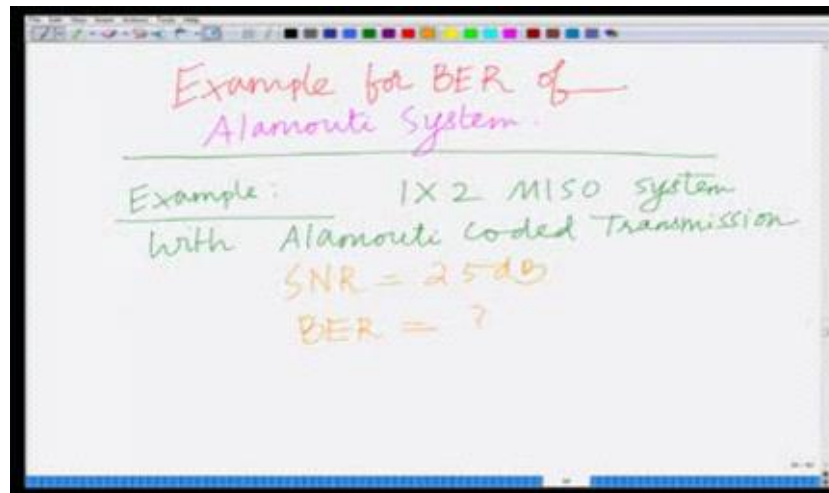 Example for BER of
Alamouti System.
Example: 1X2 MISO system
With Alamouti coded Transmission
SNR = 25dB
BER = ?